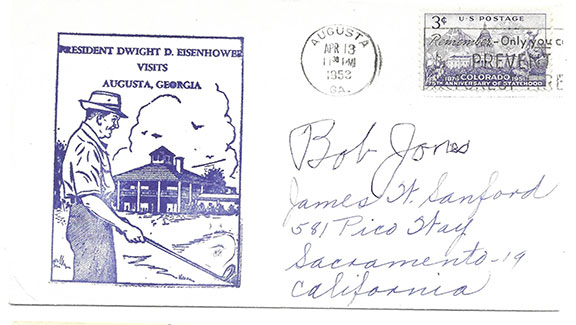 PRESIDENT DWIGHT D. EISENHOWER
VISITS
AUGUSTA, GEORGIA
AUGUSTA
APR 13
1953
GA.
3¢ U.S. POSTAGE
Remember-Only you c
PREVENT
1876 COLORADO 1951
75TH ANNIVERSARY OF STATEHOOD
Bob Jones
James W. Sanford
581 Pico Way
Sacramento-19
California